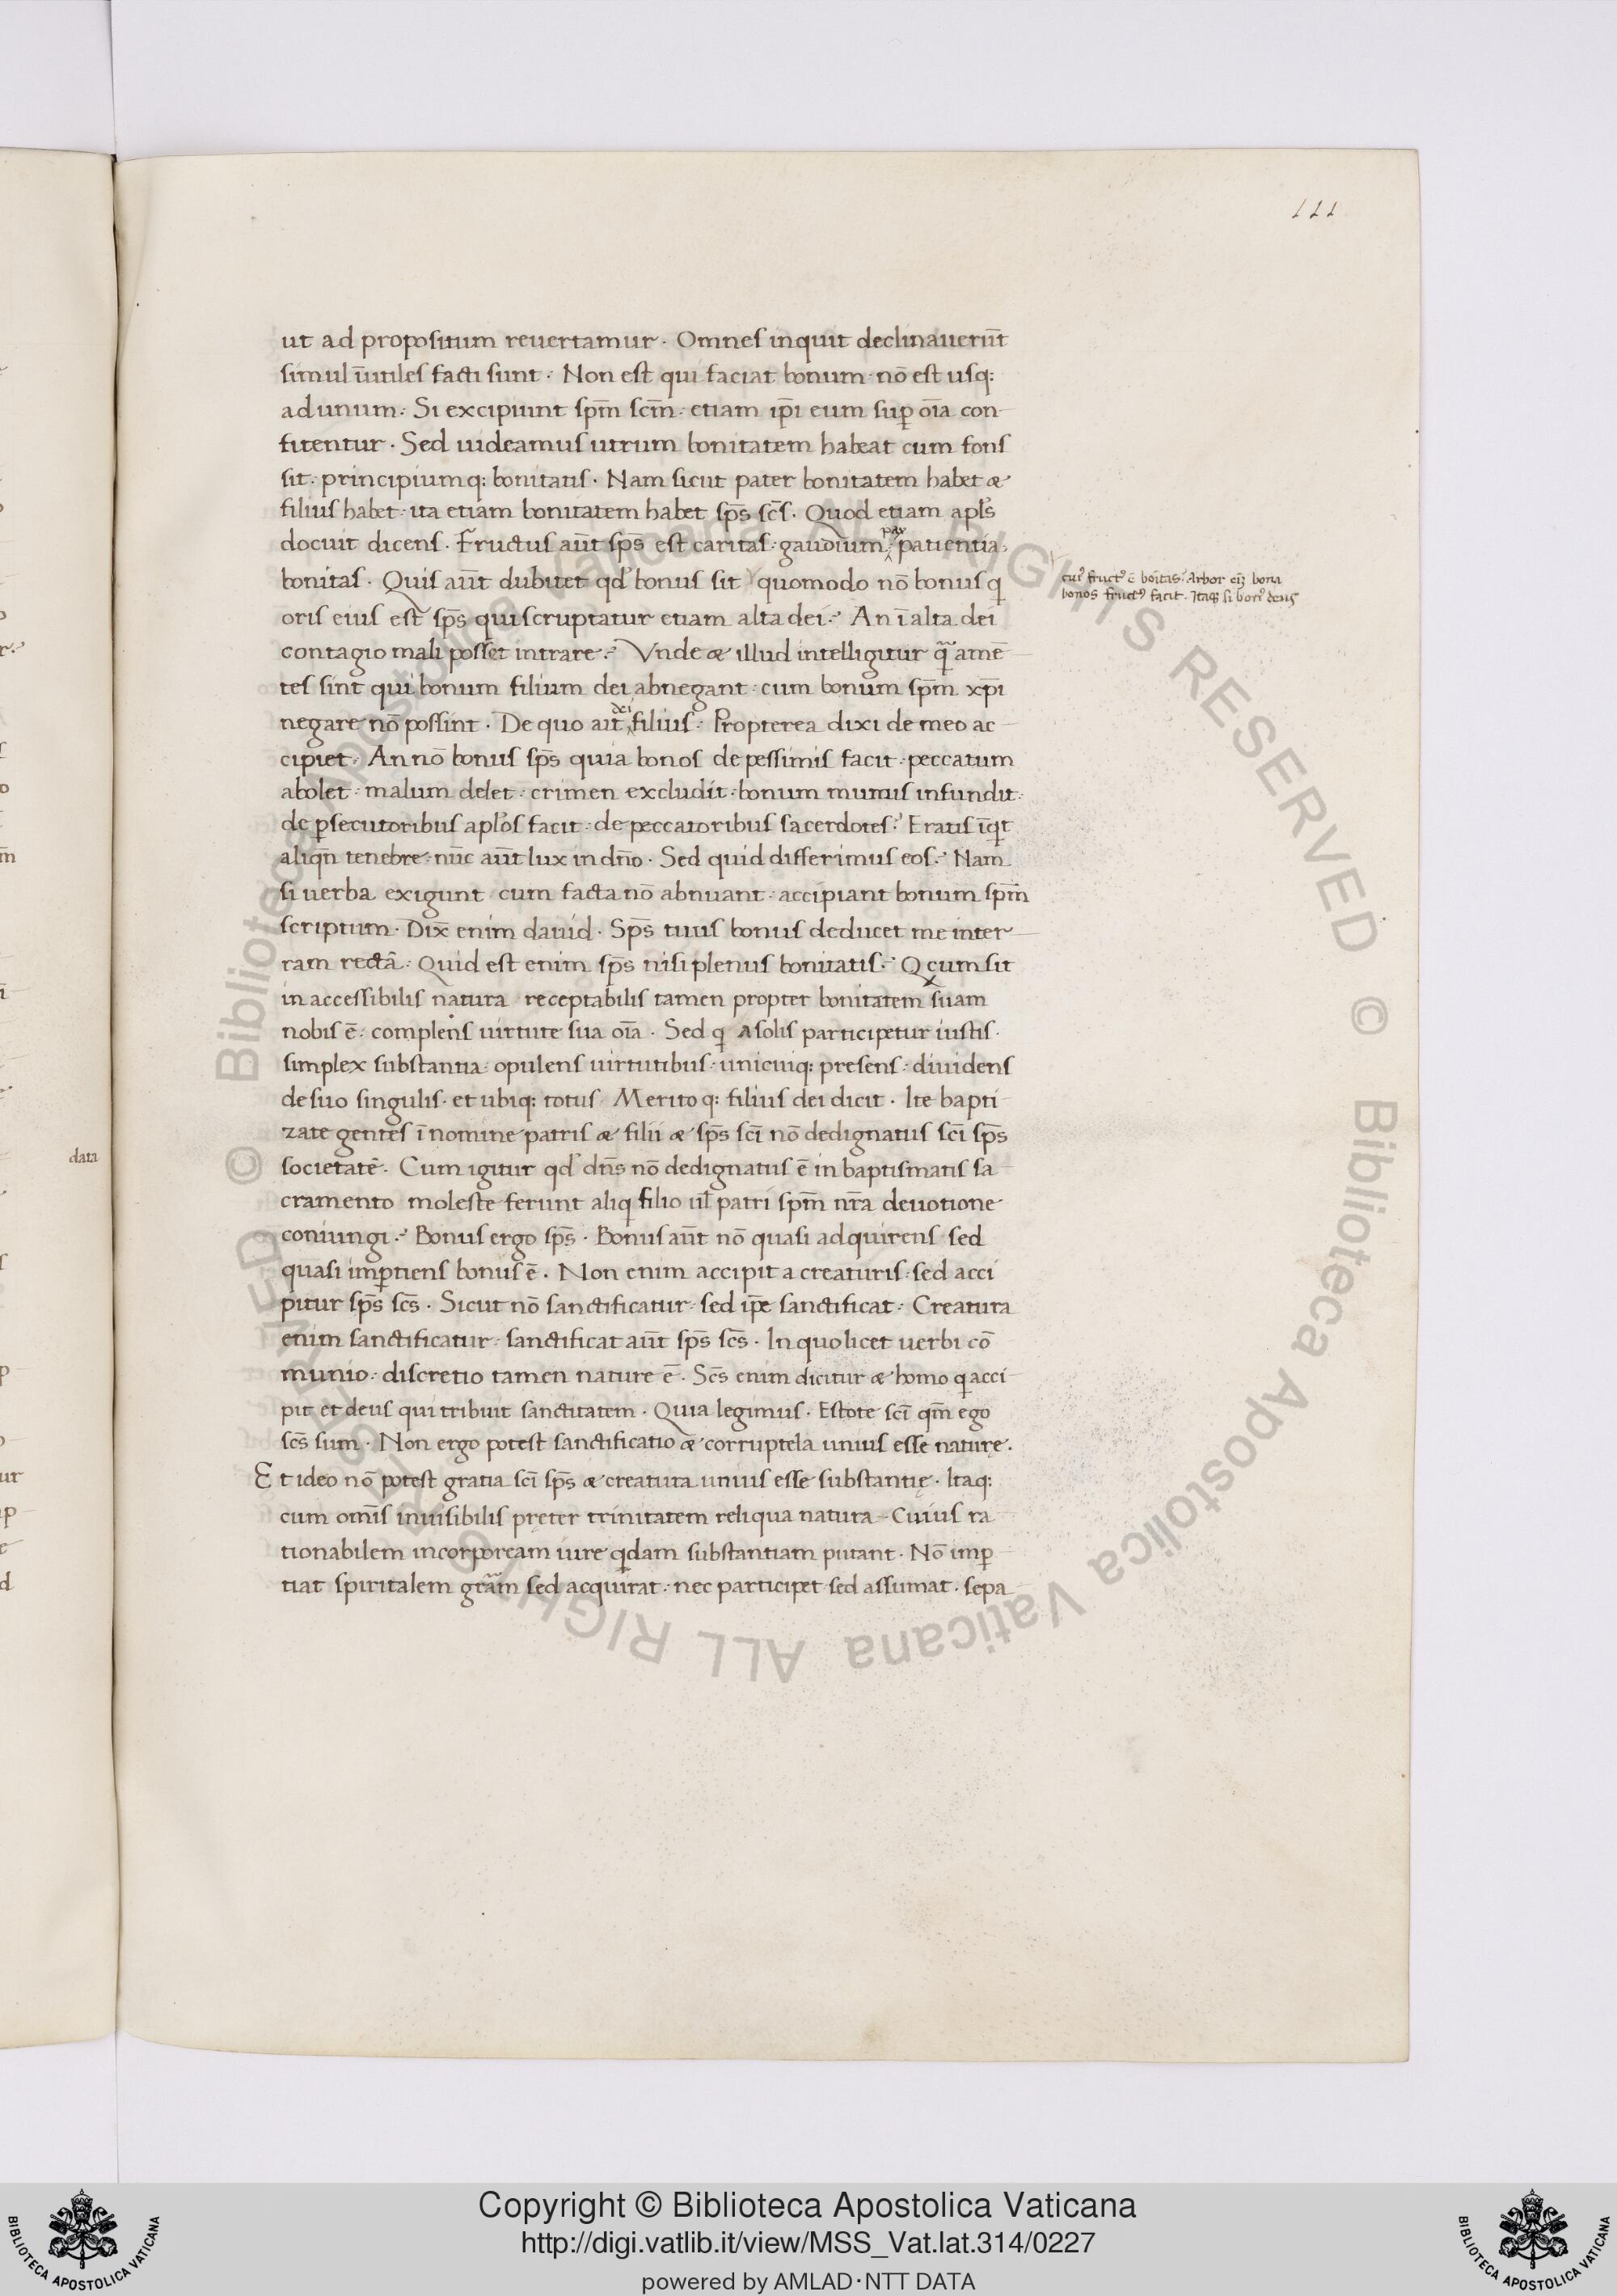 111
ut ad propositum reuertamur. Omnes inquit declinauerūt
simul īutiles facti sunt. Non est qui faciat bonum. nō est usq:
ad unum. Si excipiunt sp̄m sc̄m. etiam ip̄i eum suꝑ oīa con
fitentur. Sed uideamus utrum bonitatem habeat cum fons
sit. principiumq: bonitatis. Nam sicut pater bonitatem habet æ
filius habet. ita etiam bonitatem habet sp̄s sc̄s. Quod etiam apl̄s
docuit dicens. Fructus aūt sp̄s est caritas. gaudium. pax patientia.
bonitas. Quis aūt dubitet qd' bonus sit quomodo nō bonus q
cuiꝰ fructꝰ ē boītas. Arbor eiȝ bona
bonos fructꝰ facit. Itaqȝ si borꝰ deus
oris eius est sp̄s qui scruptatur etiam alta dei? An ī alta dei
contagio mali posset intrare? Vnde æ illud intelligitur q̄ amē
tes sint qui bonum filium dei abnegant. cum bonum sp̄m xp̄i
negare nō possint. De quo ait dei filius. Propterea dixi de meo ac
cipiet. An nō bonus sp̄s quia bonos de pessimis facit. peccatum
abolet. malum delet. crimen excludit. bonum munus infundit.
de ꝑsecutoribus apl̄os facit. de peccatoribus sacerdotes? Eratis īqt
aliqn̄ tenebre. nūc aūt lux in dn̄o. Sed quid differimus eos? Nam
si uerba exigunt cum facta nō abnuant. accipiant bonum sp̄m
scriptum. Dix̄ enim dauid. Sp̄s tuus bonus deducet me inter
ram rectā. Quid est enim sp̄s nisi plenus bonitatis? Q cum sit
in accessibilis natura receptabilis tamen propter bonitatem suam
nobis ē. complens uirtute sua oīa. Sed q a solis participetur iustis.
simplex substantia. opulens uirtutibus. unicuiq: presens. diuidens
de suo singulis. et ubiq: totus. Merito q: filius dei dicit. Ite bapti
zate gentes ī nomine patris æ filii æ sp̄s sc̄i nō dedignatus sc̄i sp̄s
societatē. Cum igitur qd' dn̄s nō dedignatus ē in baptismatis sa
cramento moleste ferunt aliq filio ul̄ patri sp̄m nr̄a deuotione
coniungi? Bonus ergo sp̄s. Bonus aūt nō quasi adquirens sed
quasi imꝑtiens bonus ē. Non enim accipit a creaturis. sed acci
pitur sp̄s sc̄s. Sicut nō sanctificatur. sed ip̄e sanctificat. Creatura
enim sanctificatur. sanctificat aūt sp̄s sc̄s. In quo licet uerbi cō
munio. discretio tamen nature ē. Sc̄s enim dicitur æ homo q acci
pit et deus qui tribuit sanctitatem. Quia legimus. Estote sc̄i qm̄ ego
sc̄s sum. Non ergo potest sanctificatio æ corruptela unius esse naturę.
Et ideo nō potest gratia sc̄i sp̄s æ creatura unius esse substantię. Itaq:
cum om̄is inuisibilis pręter trinitatem reliqua natura. Cuius ra
tionabilem incorpoream iure qdam substantiam putant. Nō imꝑ
tiat spiritalem gr̄am sed acquirat. nec participet sed assumat. sepa
data
© Biblioteca Apostolica Vaticana ALL RIGHTS RESERVED © Biblioteca Apostolica Vaticana ALL RIGHTS RESERVED
Copyright © Biblioteca Apostolica Vaticana
http://digi.vatlib.it/view/MSS_Vat.lat.314/0227
powered by AMLAD·NTT DATA
BIBLIOTECA APOSTOLICA VATICANA
BIBLIOTECA APOSTOLICA VATICANA